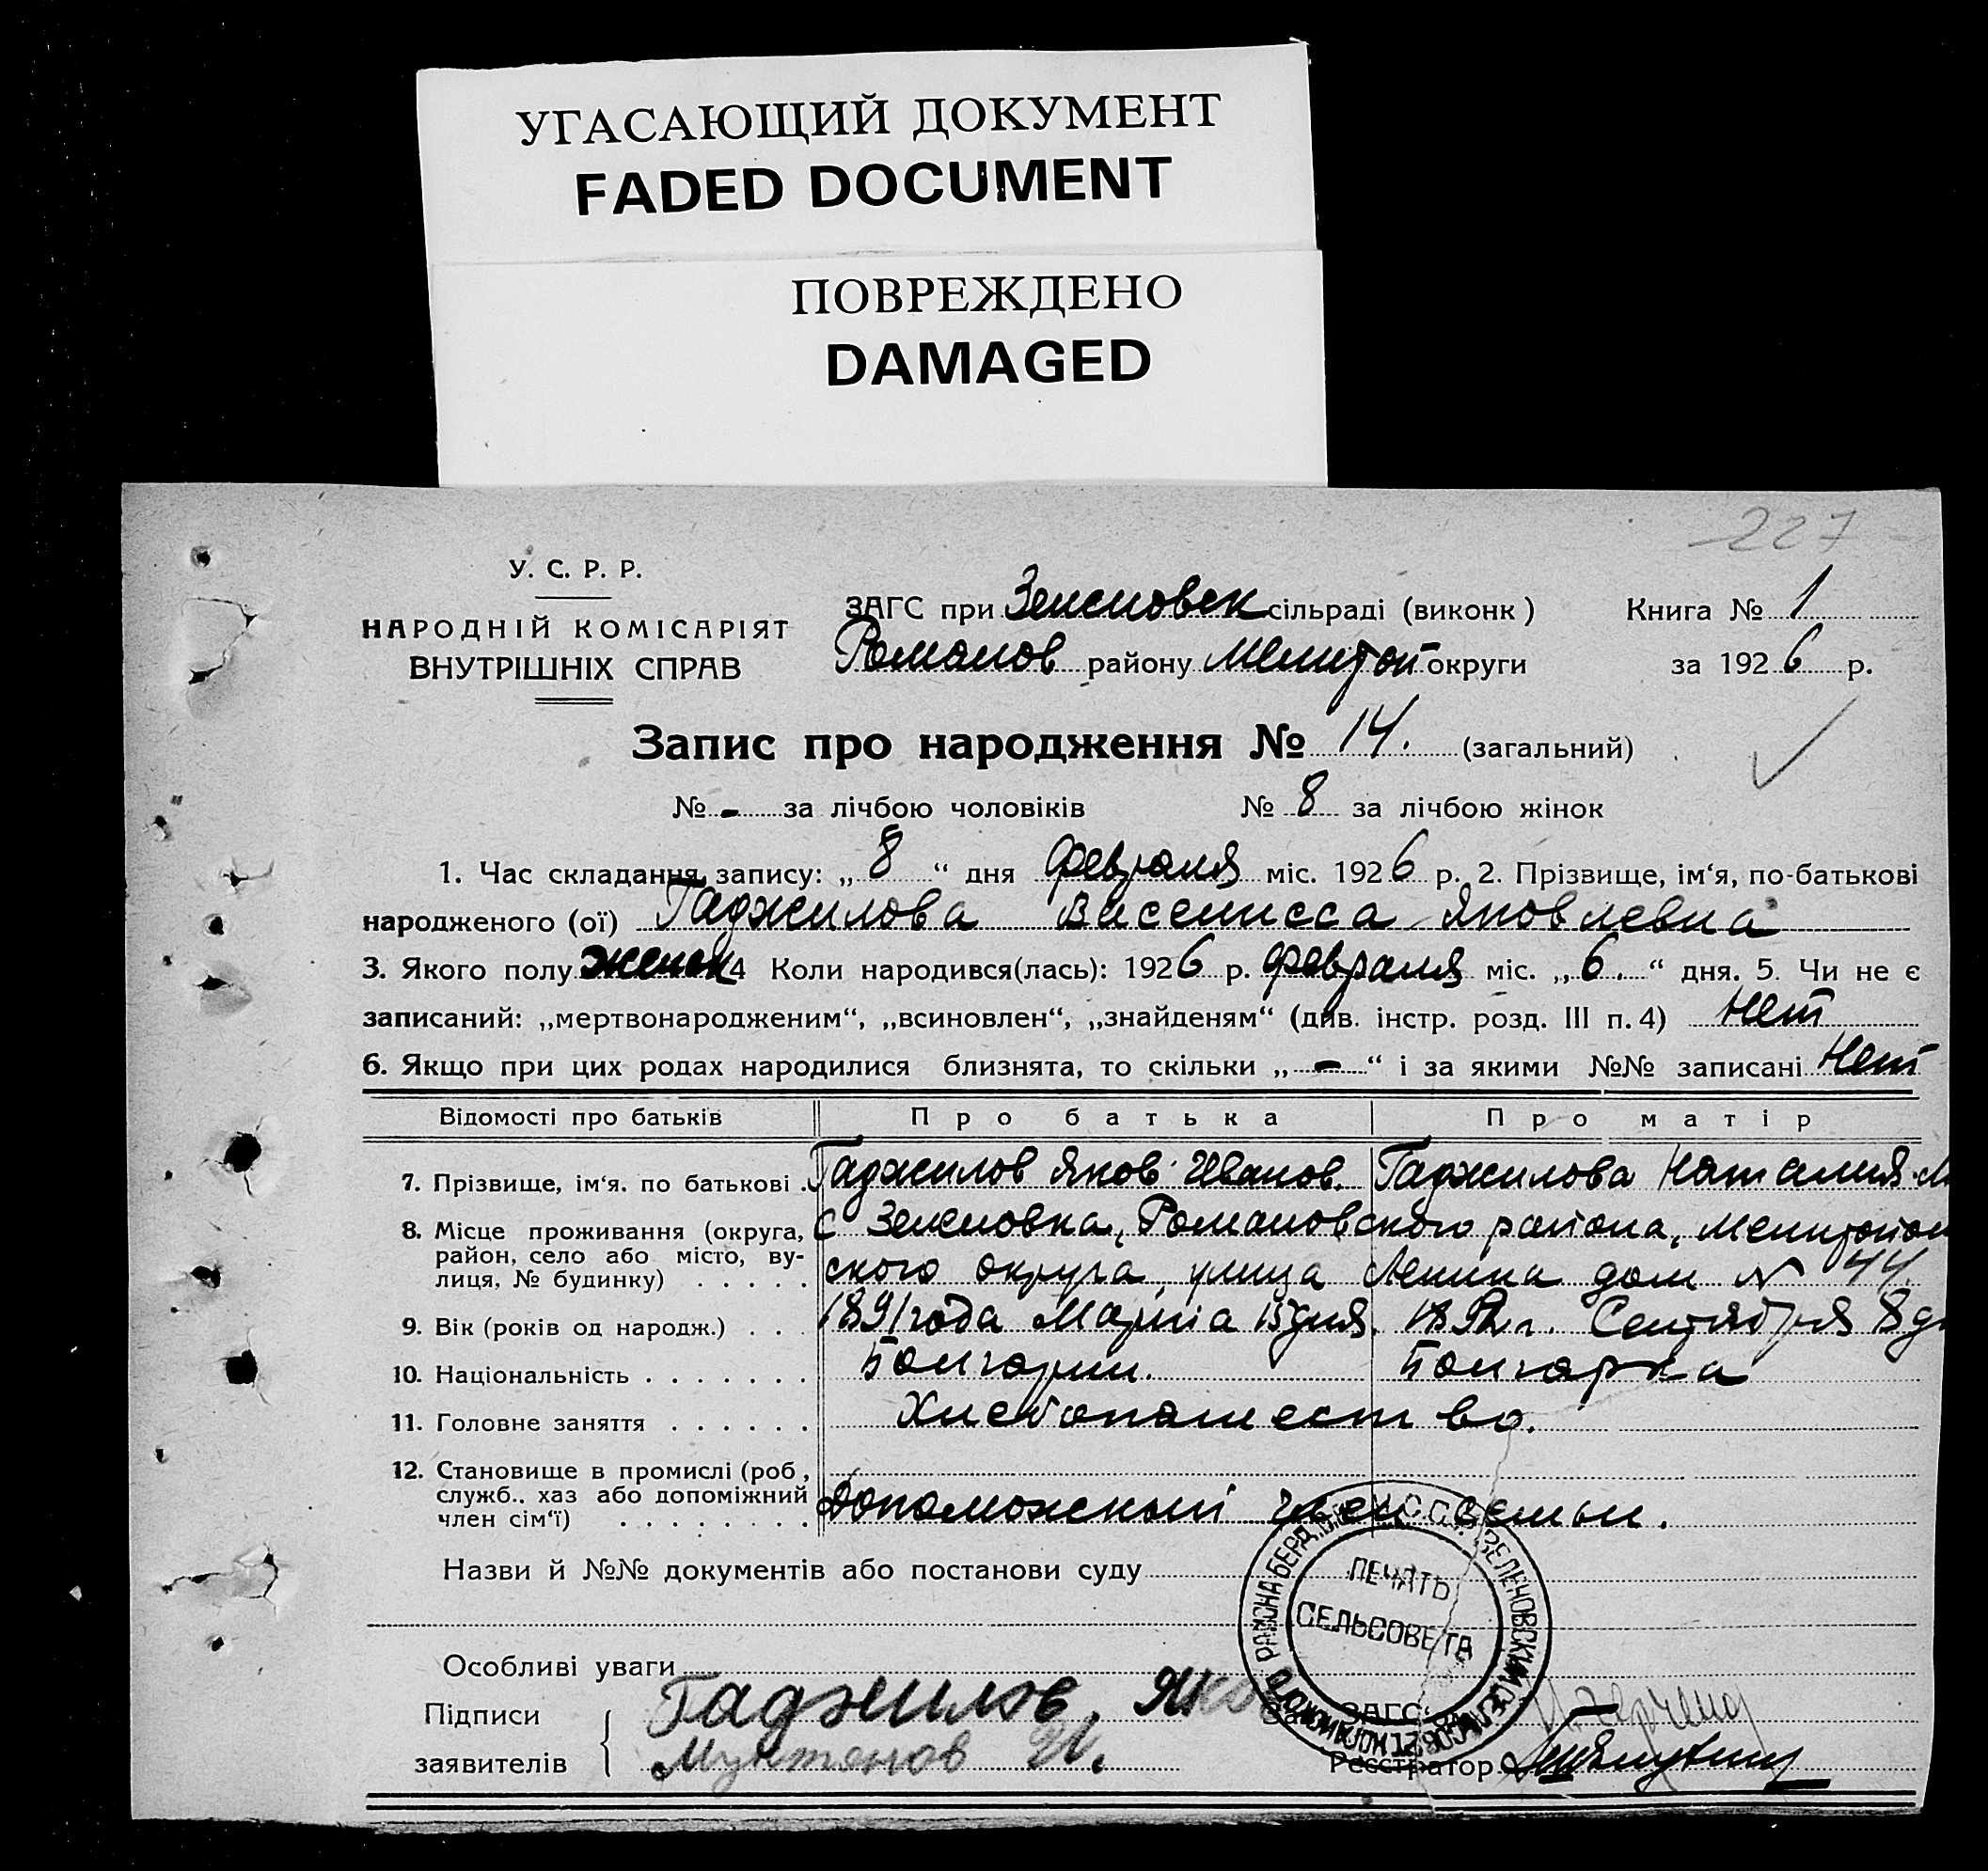 УГАСАЮЩИЙ ДОКУМЕНТ
FADED DOCUMENT
ПОВРЕЖДЕНО
DAMAGED
227
У. С. Р. Р.
НАРОДНІЙ КОМІСАРІЯТ
ВНУТРІШНІХ СПРАВ
ЗАГС при Зеленовск сільраді (виконк) Книга № 1
Романов району Мелитоп округи за 1926 р.
Запис про народження № 14. (загальний)
№ - за лічбою чоловіків № 8 за лічбою жінок
1. Час складання запису: „ 8 “ дня февраля міс. 1926 р. 2. Прізвище, ім‘я, по-батькові
народженого (ої) Гаджилова Яковлевна
3. Якого полу женск 4 Коли народився(лась): 1926 р. февраля міс. „ 6. “ дня. 5. Чи не є
записаний: „мертвонародженим“, „всиновлен“, „знайденям“ (див. інстр. розд. III п. 4) Нет
6. Якщо при цих родах народилися близнята, то скільки „ - “ і за якими №№ записані Нет
Відомості про батьків Про батька Про матір
7. Прізвище, ім‘я. по батькові . Гаджилов Яков Иванов. Гаджилова Наталия
8. Місце проживання (округа, район, село або місто, ву-лиця, № будинку) . . . . . с Зеленовка, Романовского района, Мелитополь
ского округа улица Ленина дом № 44.
9. Вік (років од народж.) . . . 1891 года Марта 15 дня. 1892 г. Сентября 8 дн
10. Національність . . . . . . . Болгарин. Болгарка
11. Головне заняття . . . . . . Хлебопашество.
12. Становище в промислі (роб, служб.. хаз або допоміжний член сім‘ї) . . . . . . . . Допоможный член семьи.
Назви й №№ документів або постанови суду
ПЕЧАТЬ
СЕЛЬСОВЕТА
Особливі уваги
Підписи заявителів
Гаджилов. Яков
Мунтянов И.
Зав. ЗАГС‘ом
Реєстратор